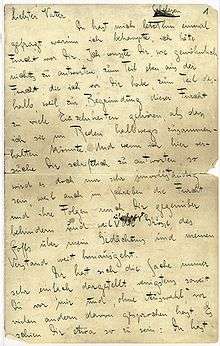 Schelesen 1
Liebster Vater
Du hast mich letzthin einmal
gefragt warum ich behaupte ich hätte
Furcht vor Dir. Ich wusste Dir wie gewöhnlich
nichts zu antworten zum Teil eben aus der
Furcht die ich vor Dir habe zum Teil des
halb weil zur Begründung dieser Furcht
zu viele Einzelnheiten gehören als dass
ich sie im Reden halbwegs zusammen
halten könnte. Und wenn ich hier ver
suche Dir schriftlich zu antworten so
wird es doch nur sehr unvollständig
sein weil auch im Schreiben die Furcht
und ihre Folgen mich Dir gegenüber
behindern und weil die Grösse des
Stoffs über mein Gedächtnis und meinen
Verstand weit hinausgeht.
Dir hat sich die Sache immer
sehr einfach dargestellt wenigstens soweit
Du vor mir und ohne Auswahl vor
vielen andern davon gesprochen hast. Es
schien Dir etwa so zu sein: Du hast